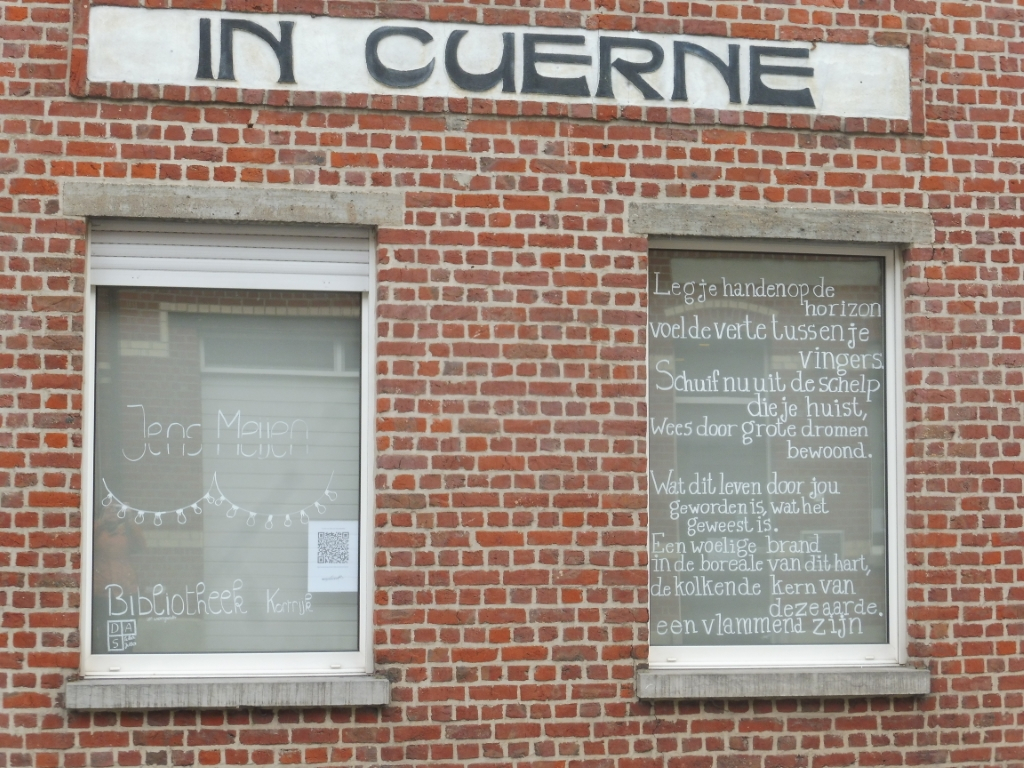 IN CUERNE
Jens Meijen
Bibliotheek Kortrijk
DA
S
Leg je handen op de
horizon
voel de verte tussen je
vingers
Schuif nu uit de schelp
die je huist,
Wees door grote dromen
bewoond.
Wat dit leven door jou
geworden is, wat het
geweest is.
Een woelige brand
in de boreale van dit hart,
de kolkende kern van
deze aarde.
een vlammend zijn